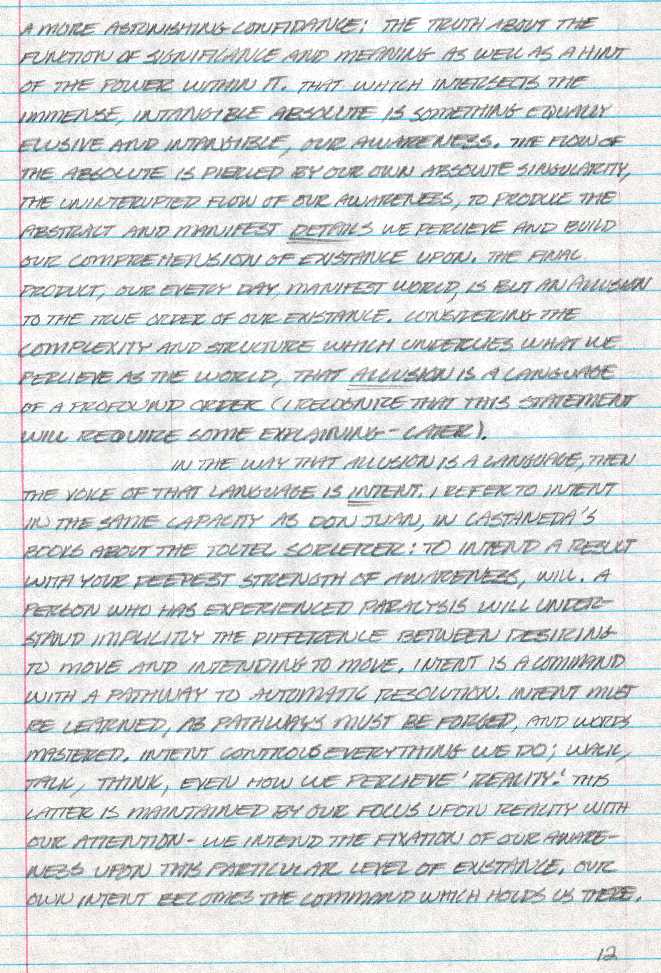 A MORE ASTONISHING CONFIDANCE: THE TRUTH ABOUT THE
FUNCTION OF SIGNIFICANCE AND MEANING AS WELL AS A HINT
OF THE POWER WITHIN IT. THAT WHICH INTERSECTS THE
IMMENSE, INTANGIBLE ABSOLUTE IS SOMETHING EQUALLY
ELUSIVE AND INTANGIBLE, OUR AWARENESS. THE FLOW OF
THE ABSOLUTE IS PIERCED BY OUR OWN ABSOLUTE SINGULARITY,
THE UNINTERUPTED FLOW OF OUR AWARENESS, TO PRODUCE THE
ABSTRACT AND MANIFEST DETAILS WE PERCIEVE AND BUILD
OUR COMPREHENSION OF EXISTANCE UPON. THE FINAL
PRODUCT, OUR EVERY DAY, MANIFEST WORLD, IS BUT AN ALLUSION
TO THE TRUE ORDER OF OUR EXISTANCE. CONSIDERING THE
COMPLEXITY AND STRUCTURE WHICH UNDERLIES WHAT WE
PERCIEVE AS THE WORLD, THAT ALLUSION IS A LANGUAGE
OF A PROFOUND ORDER (I RECOGNIZE THAT THIS STATEMENT
WILL REQUIRE SOME EXPLAINING - LATER).
IN THE WAY THAT ALLUSION IS A LANGUAGE, THEN
THE VOICE OF THAT LANGUAGE IS INTENT. I REFER TO INTENT
IN THE SAME CAPACITY AS DON JUAN, IN CASTANEDA'S
BOOKS ABOUT THE TOLTEC SORCERER: TO INTEND A RESULT
WITH YOUR DEEPEST STRENGTH OF AWARENESS, WILL. A
PERSON WHO HAS EXPERIENCED PARALYSIS WILL UNDER-
STAND IMPLICITLY THE DIFFERENCE BETWEEN DESIRING
TO MOVE AND INTENDING TO MOVE. INTENT IS A COMMAND
WITH A PATHWAY TO AUTOMATIC RESOLUTION. INTENT MUST
BE LEARNED, AS PATHWAYS MUST BE FORGED, AND WORDS
MASTERED. INTENT CONTROLS EVERYTHING WE DO; WALK,
TALK, THINK, EVEN HOW WE PERCIEVE 'REALITY.' THIS
LATTER IS MAINTAINED BY OUR FOCUS UPON REALITY WITH
OUR ATTENTION - WE INTEND THE FIXATION OF OUR AWARE-
NESS UPON THIS PARTICULAR LEVEL OF EXISTANCE. OUR
OWN INTENT BECOMES THE COMMAND WHICH HOLDS US THERE.
12